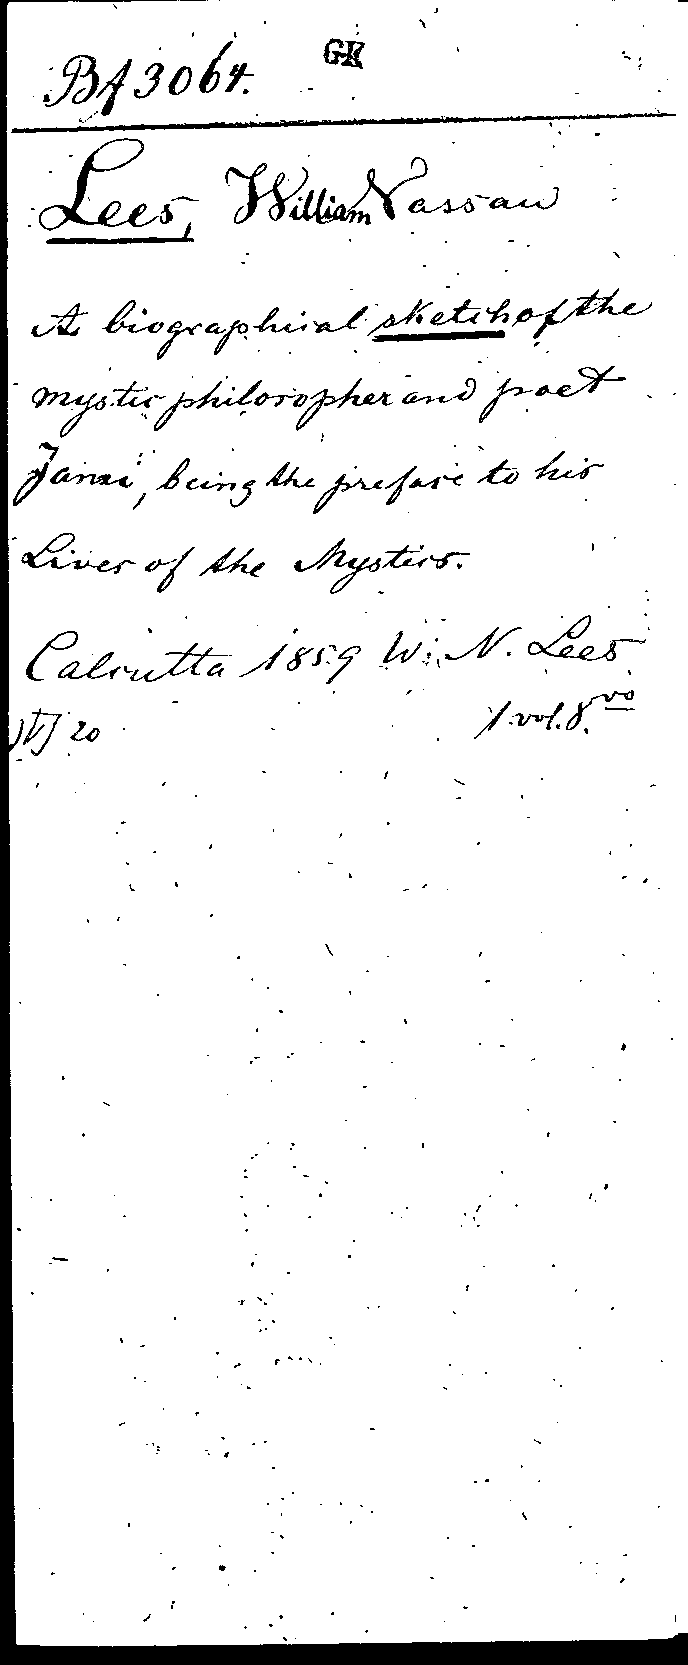 GK
Bf 3064.
Lees, William Nassau
A biographical sketch of the
mystic philosopher and poet
Jami, being the preface to his
Lives of the Mystics.
Calcutta 1859 W. N. Lees
1 vol. 8.vo
20